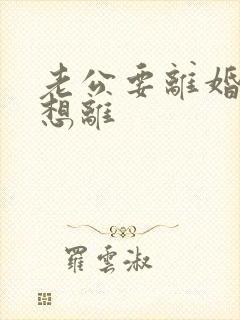 老公要離婚
想離
羅雲淑